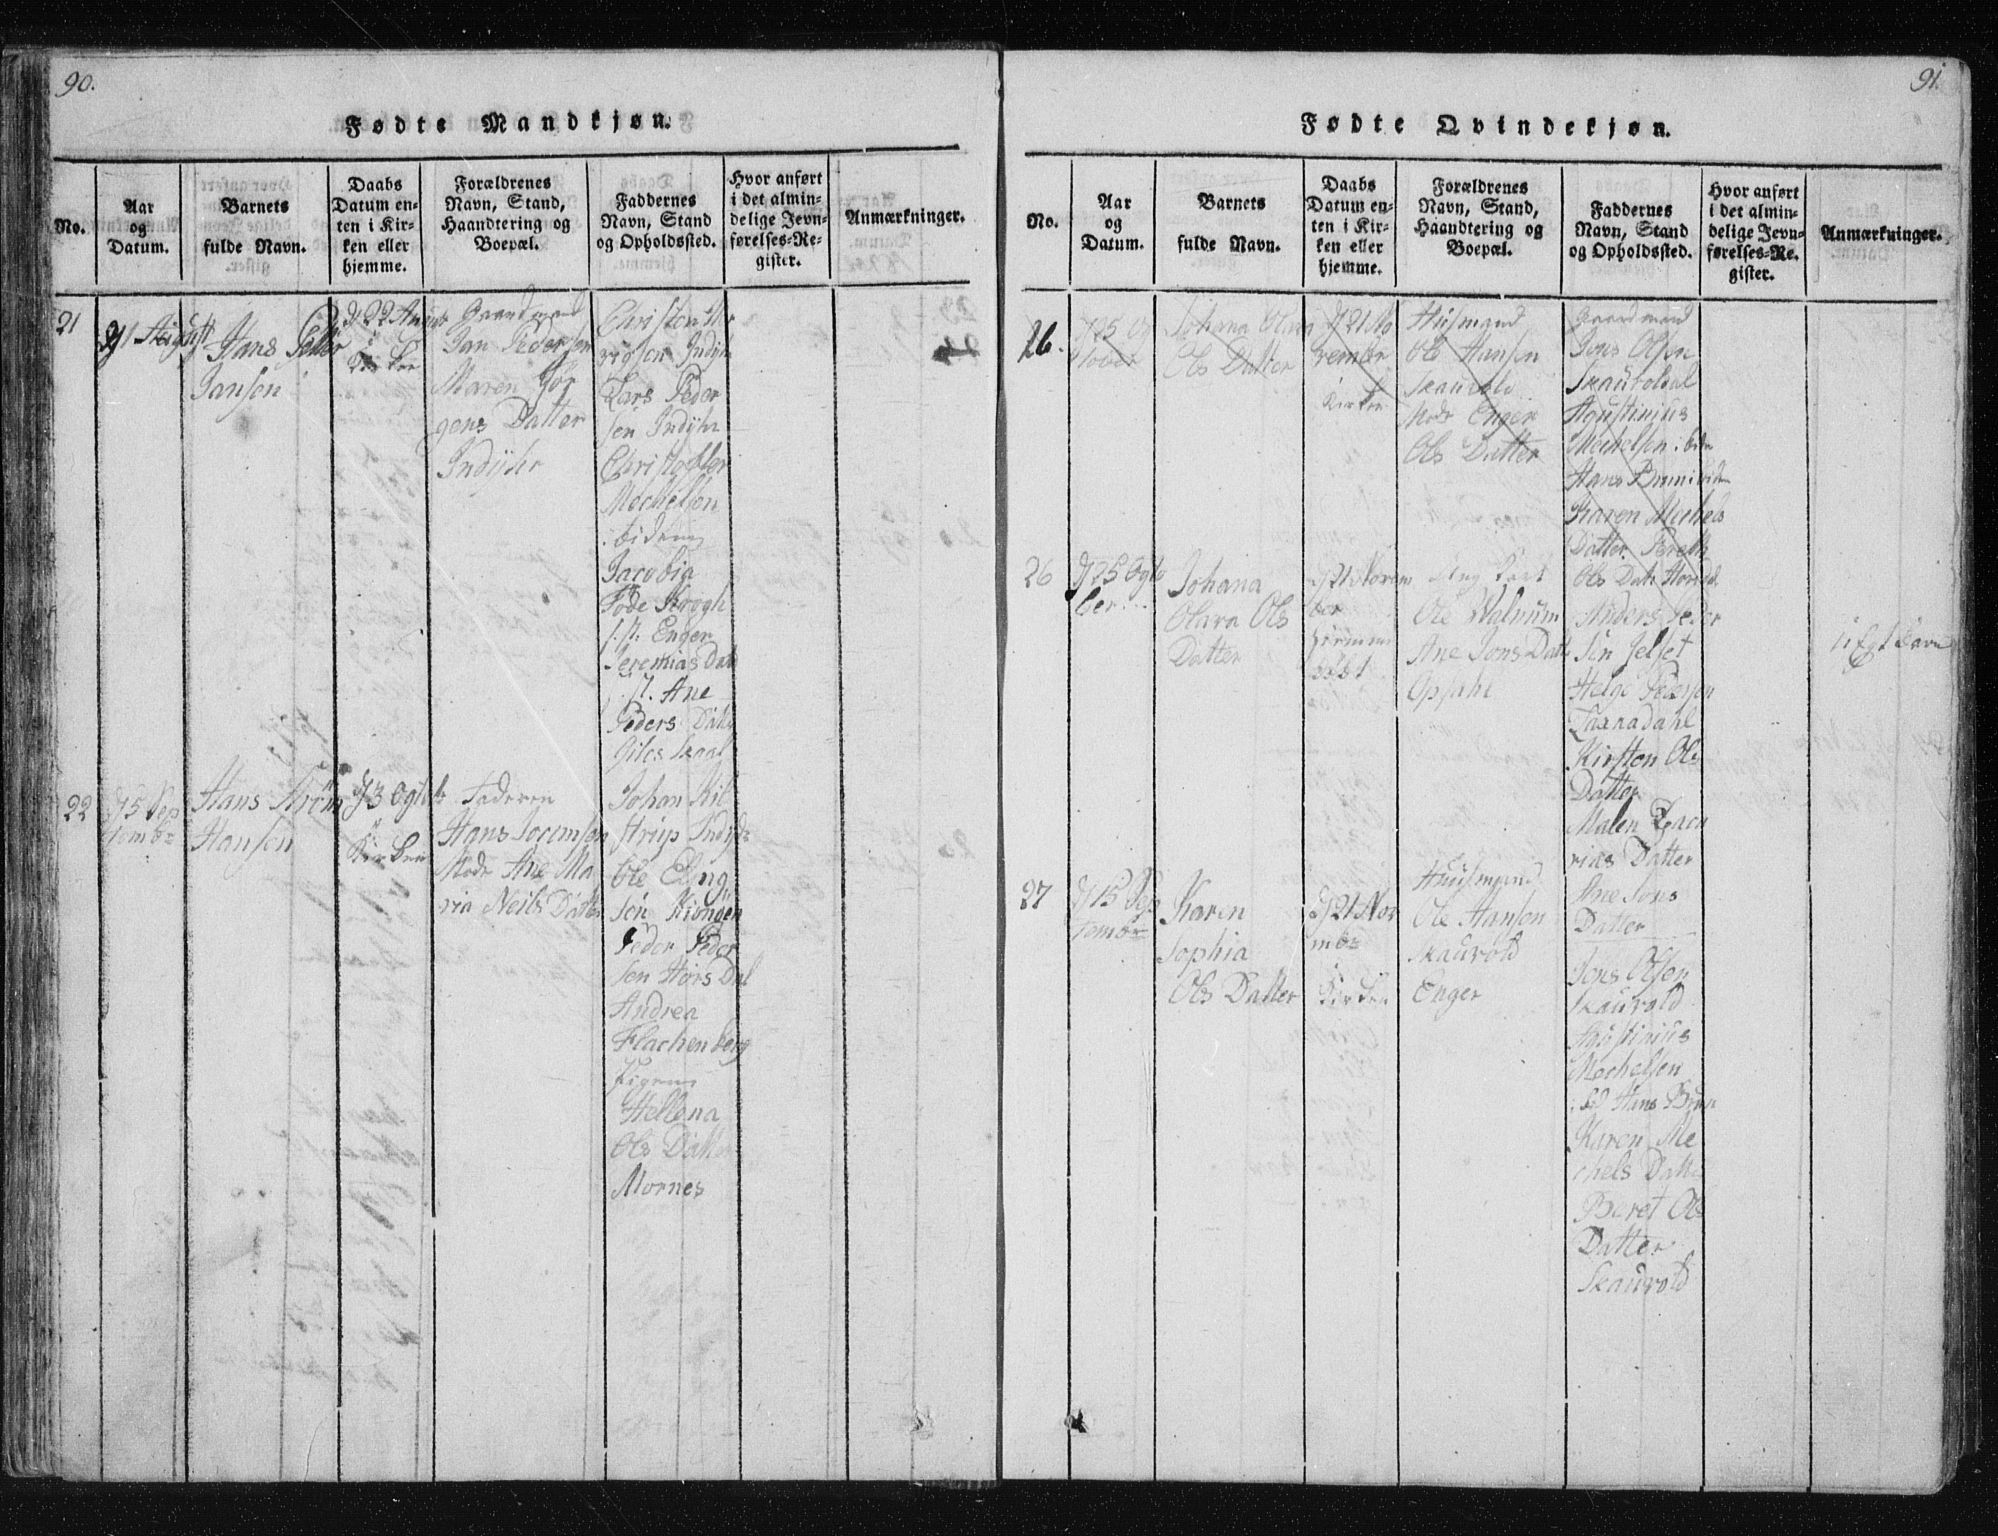 90.
Fødte Mandkjøn.
No.
Aar
og
Datum.
Barnets
fulde Navn.
Daabs
Datum en-
ten i Kir-
ken eller
hjemme.
Forældrenes
Navn, Stand,
Haandtering og
Boepæl.
Faddernes
Navn, Stand
og Opholdssted.
Hvor anført
i det almin-
delige Jevn-
førelses-Re-
gister.
Anmærkninger.
21
August
Hans Peter
Jansen
22 August
Kirken
Gaardmand
Jan Pedersen
Maren Jör
gens Datter
Indijhr
Christoffer
Lars Peder
sen Indijhr
Christoffer
Mechelsen
Jacobia
Krogh
Enger
Jeremias Dat
Ane
Peders Datter
22
d/ 15 Sep
tembr
Hans Strøm
Hansen
d/ 3 Ogtob
Kirken
Faderen
Hans Jocumsen
Mode Ane Ma
ria Neils Datter
Johan Kil
strup Indijhr
Ole Eling
sen
Peder Peder
sen Hörs Dal
Andrea
Flachenberg
Pigerne
Hellena
Ols Datter
Mornes
91.
Fødte Qvindekjøn.
No.
Aar
og
Datum.
Barnets
fulde Navn.
Daabs
Datum en-
ten i Kir-
ken eller
hjemme.
Forældrenes
Navn, Stand,
Haandtering og
Boepæl.
Faddernes
Navn, Stand
og Opholdssted.
Hvor anført
i det almin-
delige Jevn-
førelses-Re-
gister.
Anmærkninger.
26.
d/ 25 Og
tober
Johana Olava
Ols Datter
d/ 21 No
vembr
Kirken
Husmand
Ole Hansen
Skauvold
Mode Enger
Ols Datter
Gaardmand
Jons Olsen
Skauvold
Agustinius
Mechelsen
Hans Brun
Karen Mechels
Datter
Ols Datr
26
d/ 25 Ogto
ber
Johana
Olava Ols
Datter
d/ 21 Novem
ber
hiemme
döbt
Ung Karl
Ole Walnum
Ane Jons Datt
Opsahl
Anders Peder
sen Jelset
Helge Pedersen
Kirsten Ols
Datter
Malen Zaca
rias Datter
Ane Jons
Datter
27
d/ 15 Sep
tembr
Karen
Sophia
Ols Datter
d/ 21 Nov
mbr
Kirken
Huusmand
Ole Hansen
Skauvold
Enger
Jons Olsen
Skauvold
Agustinius
Mechelsen
Hans Brun
Karen Me
chels Datter
Beret Ols
Datter
Skauvold